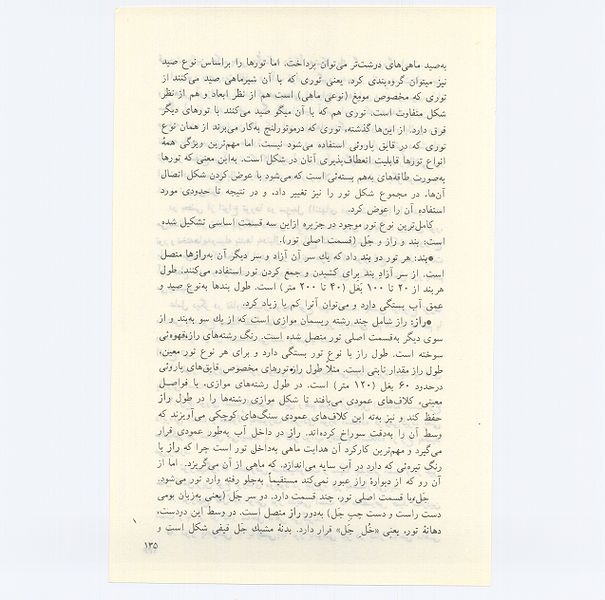 به‌صید ماهی‌های درشت‌تر می‌توان پرداخت. اما تورها را براساس نوع صید
نیز میتوان گروه‌بندی کرد، یعنی توری که با آن شیرماهی صید می‌کنند از
توری که مخصوص مومغ (نوعی ماهی) است هم از نظر ابعاد و هم از نظر
شکل متفاوت است. توری هم که با آن میگو صید می‌کنند با تورهای دیگر
فرق دارد. از این‌ها گذشته، توری که درموتورلنج به‌کار می‌برند از همان نوع
توری که در قایق پاروئی استفاده می‌شود نیست. اما مهم‌ترین ویژگی همهٔ
انواع تورها قابلیت انعطاف‌پذیری آنان در شکل است. به‌این معنی که تورها
به‌صورت طاقه‌های به‌هم بسته‌ئی است که می‌شود با عوض کردن شکل اتصال
آن‌ها، در مجموع شکل تور را نیز تغییر داد، و در نتیجه تا حدودی مورد
استفاده آن را عوض کرد.
کامل‌ترین نوع تور موجود در جزیره ازاین سه قسمت اساسی تشکیل شده
است: بند و راز و جَل (قسمت اصلی تور).
●بند: هر تور دو بند داد که یك سر آن آزاد و سر دیگر آن به‌رازها متصل
است. از سر آزاد بند برای کشیدن و جمع کردن تور استفاده می‌کنند. طول
هربند از ۲۰ تا ۱۰۰ بَغل (۴۰ تا ۲۰۰ متر) است. طول بندها به‌نوع صید و
عمق آب بستگی دارد و می‌توان آنرا کم یا زیاد کرد.
●راز: راز شامل چند رشته ریسمان موازی است که از یك سو به‌بند و از
سوی دیگر به‌قسمت اصلی تور متصل شده است. رنگ رشته‌های راز،قهوه‌ئی
سوخته است. طول راز با نوع تور بستگی دارد و برای هر نوع تور معین،
طول راز مقدار ثابتی است. مثلاً طول راز تورهای مخصوص قایق‌های پاروئی
درحدود ۶۰ بغل (۱۲۰ متر) است. در طول رشته‌های موازی، با فواصل
معینی، کلاف‌های عمودی می‌بافند تا شکل موازی رشته‌ها را در طول راز
حفظ کند و نیز به‌ته این کلاف‌های عمودی سنگ‌های کوچکی می‌آویزند که
وسط آن را به‌دقت سوراخ کرده‌اند. راز در داخل آب به‌طور عمودی قرار
می‌گیرد و مهم‌ترین کارکرد آن هدایت ماهی به‌داخل تور است چرا که راز با
رنگ تیره‌ئی که دارد در آب سایه می‌اندازد، که ماهی از آن می‌گریزد. اما از
آن رو که از دیوارهٔ راز عبور نمی‌کند مستقیماً به‌جلو رفته وارد تور می‌شود.
جَل،یا قسمت اصلی تور، چند قسمت دارد. دو سر جَل (یعنی به‌زبان بومی
دست راست و دست چپ جَل) به‌دور راز متصل است. در وسط این دودست،
دهانهٔ تور، یعنی «خُلِ جَل» قرار دارد. بدنهٔ مشبك جَل قیفی شکل است و
۱۳۵